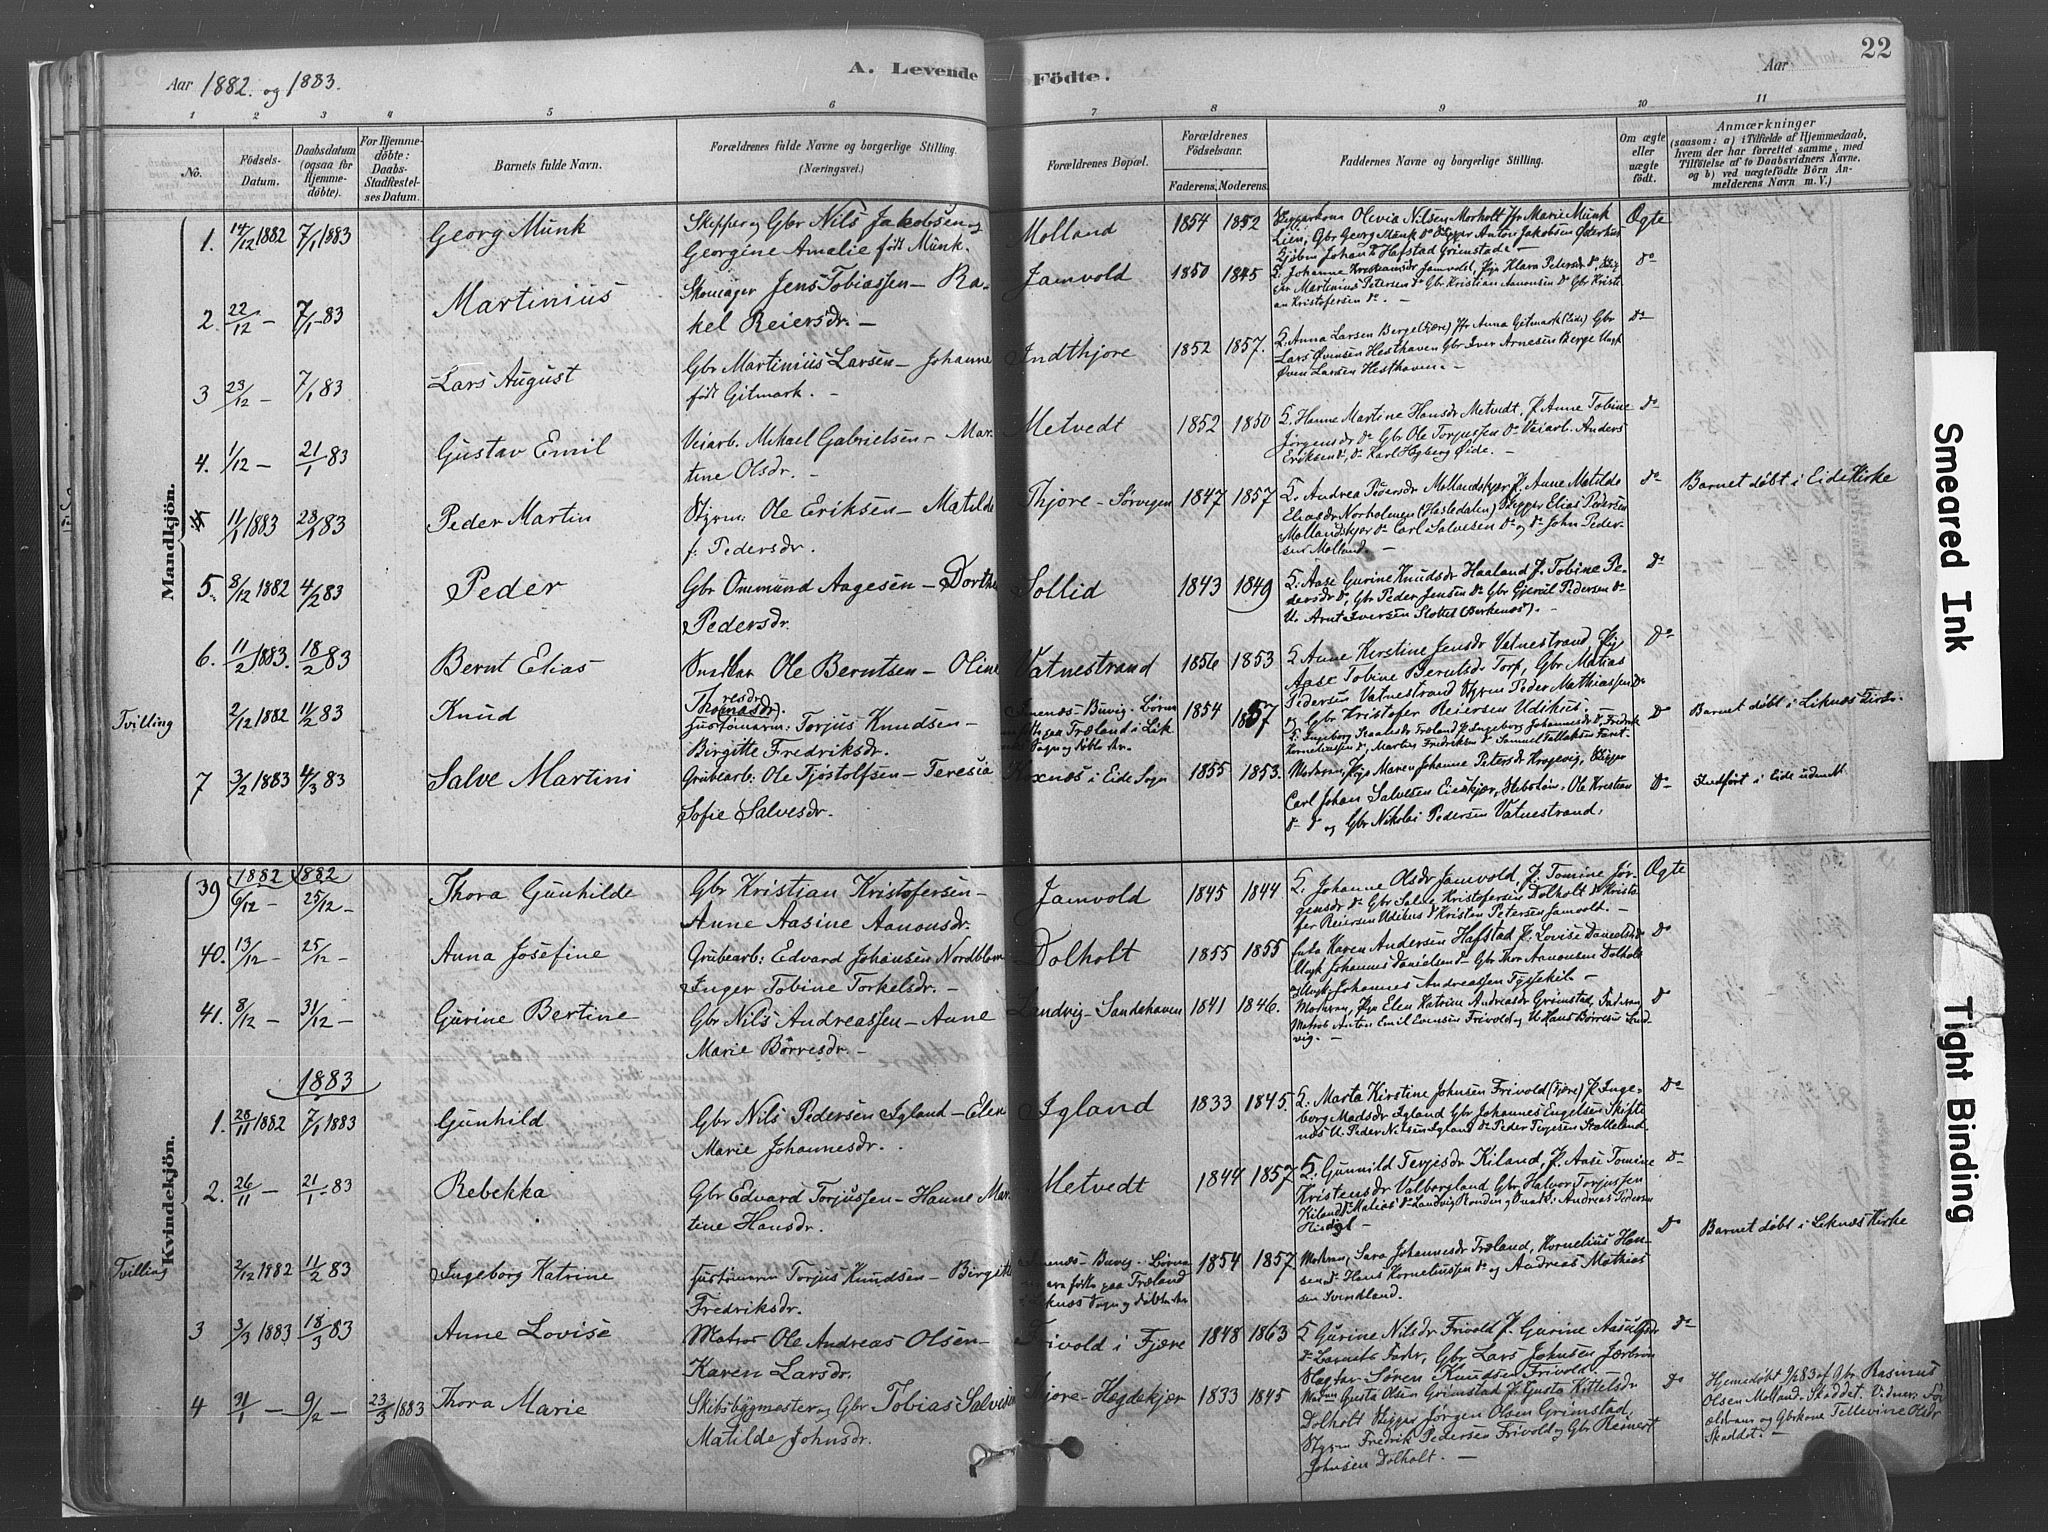 22
Aar 1882. og 1883.
A. Levende Födte.
Aar
1 2 3 4 5 6 7 8 9 10 11
No.
Födsels-Datum.
Daabsdatum (ogsaa for Hjemme-döbte).
For Hjemme-döbte: Daabs-Stadfæstel-ses Datum.
Barnets fulde Navn.
Forældrenes fulde Navne og borgerlige Stilling. (Næringsvei.)
Forældrenes Bopæl.
Forældrenes Födselsaar.
Faderens. Moderens.
Faddernes Navne og borgerlige Stilling.
Om ægte eller uægte födt.
Anmærkninger
(saasom: a) i Tilfælde af Hjemmedaab, hvem der har forrettet samme, med Tilföielse af to Daabsvidners Navne, og b) ved uægtefödte Börn An-melderens Navn m. V.)
Mandkjön.
1. 14/12 1882 7/1 1883 Georg Munk
Skipper og Gbr Nils Jakobsen og
Georgine Amalie født Munk.
Molland 1854 1852
Skipperkone Olevia Nilsen Morholt Pr Marie Munk
Lien, Gbr Georg Munk do Skipper Anton Jakobsen Østerhus
Johan Hafstad Grimstad
Ægte
2. 22/12 – 7/1 – 83 Martinius
Skomager Jens Tobiassen – Ra-
kel Reiersdr. –
Jamvold 1850 1845
K. Johanne Kristiansdr Jamvold, Pige Klara Petersdr do, Skip-
per Martinius Petersen do Gbr Kristian Aanonsen do Gbr Kristi-
an Kristofersen do. –
do
3 23/12 – 7/1 83 Lars August
Gbr Martinius Larsen – Johanne
født Gitmark. –
Indthjore 1852 1857.
K. Anna Larsen Berge (Fjære) Pr Anna Gitmark (Eide) Gbr
Lars Øvensen Hesthaven Gbr Iver Arnesen Berge Ungk
Øven Larsen Hesthaven. –
do
4. 1/12 – 21/1 83 Gustav Emil
Veiarb. Mikael Gabrielsen – Mar-
tine Olsdr. –
Metvedt 1852 1850
K. Hanne Martine Hansdr Metvedt, P. Anne Tobine
Jørgensdr do Gbr Ole Torjussen do Veiarb. Anders
Eriksen do, do Karl Høgberg Eide. –
do
11/1 1883 28/1 83 Peder Martin
Styrm: Ole Eriksen – Matilde
f. Pedersdr.
Thjore – Sørvigen 1847 1857
K. Andrea Pedersdr Mollandskjær P. Anne Matilde
Eliasdr Norholmen (Hasledalen) Skipper Elias Pedersen
Mollandskjær do Carl Salvesen do og do John Peder-
sen Molland. –
do
Barnet døbt i Eide Kirke
5. 8/12 1882 4/2 83 Peder
Gbr Ommund Aagesen – Dorthe
Pedersdr.
Sollid 1843 1849
K. Aase Gurine Knudsdr Haaland P. Tobine Pe-
dersdr do, Gbr Peder Jensen do Gbr Gjerul Pedersen do
U. Arnt Iversen Slottet (Berkenes). –
do
6. 11/2 1883. 18/2 83 Bernt Elias
Ole Berntsen – Oline
Toresdr.
Vatnestrand 1856 1853
K Anne Kirstine Jensdr Vatnestrand Pige
Aase Tobine Berntsdr Torp, Gbr Matias
Pedersen Vatnestrand Styrm Peder Mathiassen do
og Gbr Kristofer Reiersen Udihus.
do
Tvilling 2/12 1882 11/2 83 Knud
Torjus Knudsen –
Birgitte Fredriksdr.
Imenes – Buvig. Børne-
ne født paa Træland i Lik-
nes Sogn og døbte der.
1854 1857
K. Ingeborg Træland P. Ingeborg Johannesdr do, Fredrik
Korneliussen do, Martin Fredriksen do Samuel
do
Barnet døbt i Liknes Kirke.
7 3/2 1883 4/3 83 Salve Martini
Grubearb: Ole Tjøstolfsen – Teresia
Sofie Salvesdr.
i Eide Sogn 1855 1853.
Modren, Pige Maren Johanne Petersdr Krogevig, Skipper
Carl Johan Salvesen Eieskjær, Ole Kristian
do do og Gbr Nikolai Pedersen Vatnestrand.
do
Indført i Eide uden No
Kvindekjön.
1882 1882
39 6/12 – 25/12 – Thora Gunhilde
Gbr Kristian Kristofersen –
Anne Aasine Aanonsdr.
Jamvold 1845 1844
K. Johanne Olsdr Jamvold, P. Tomine Jør-
gensdr do Gbr Salve Kristofersen Dolholt do Kristo-
fer Reiersen Udihus do Kristen Petersen Jamvolt. –
Ægte
40. 13/12 – 25/12 – Anna Josefine
Grubearb: Edvard Johansen Nordblom
Inger Tobine Torkelsdr. –
Dolholt 1855 1855
Enke Karen Andersen Hafstad P. Lovise Danielsdr do
Ungk Johannes Danielsen do Gbr Thor Aanonsen Dolholt
Ungk. Johannes Andreassen –
do
41. 8/12 – 31/12 – Gurine Bertine
Gbr Nils Andreassen – Anne
Marie Børresdr. –
Landvig – Sandehaven 1841 1846.
Modren, Pige Elen Katrine Andreasdr Grimstad, Faderen,
Matros Anton Emil Evensen Frivold og U. Hans Børresen Land-
vig. –
do
1883
1. 28/11 1882 7/1 1883 Gunhild
Gbr Nils Pedersen Igland – Elen
Marie Johannesdr. .
Igland 1833 1845.
K. Marta Kirstine Johnsen Frivold (Fjære) P. Inge-
borg Madsdr Igland Gbr Johannes Engelsen Skifte-
nes U. Peder Nilsen Igland do Peder Terjesen Stalleland
do
2. 26/11 – 21/1 83 Rebekka
Gbr Edvard Torjussen – Hanne Mar-
tine Hansdr.
Metvedt 1844 1857
K. Gunnild Terjesdr Kiland, P. Aase Tomine
Kristensdr Valborgland Gbr Halvor Torjussen
Kiland do Matias do Landvig Andreas Pedersen
do
Tvilling 2/12 1882 11/2 83 Ingeborg Katrine
Torjus Knudsen – Birgitte
Fredriksdr.
Imenes – Buvig. Børne-
ne født paa Træland
i Liknes Sogn og døbte der
1854 1857
Modren, Sara Johannesdr Træland, Kornelius Han-
sen do Hans Korneliussen do og Andreas Mathias-
sen Svindland.
do
Barnet døbt i Liknes Kirke
3 3/3 1883 18/3 83 Anne Lovise
Matros Ole Andreas Olsen –
Karen Larsdr.
Frivold i Fjære 1848 1863
K Gurine Nilsdr Frivold P. Gurine Aasulfsdr
do Barnets Fader, Gbr Lars Johnsen
Slagter Søren Knudsen Frivold –
do
4 31/1 – 9/2 – 23/3 1883 Thora Marie
Skibsbygmester og Gbr Tobias Salvesen
Matilde Johnsdr.
Thjore – Hegdekjær 1833 1845
Madam Gusta Olsen Grimstad P. Gusta Kittelsdr
Dolholt Skipper Jørgen Olsen Grimstad,
Styrm Fredrik Pedersen Frivold og Gbr Reinert
Johnsen Dolholt. –
do
Hjemedøbt 9/2 83 af Gbr. Rasmus
Olsen Molland, Skaddet. Vidner: For-
ældrene og Gbrkone Tellevine Olsdr
Skaddet. –
Smeared Ink
Tight Binding